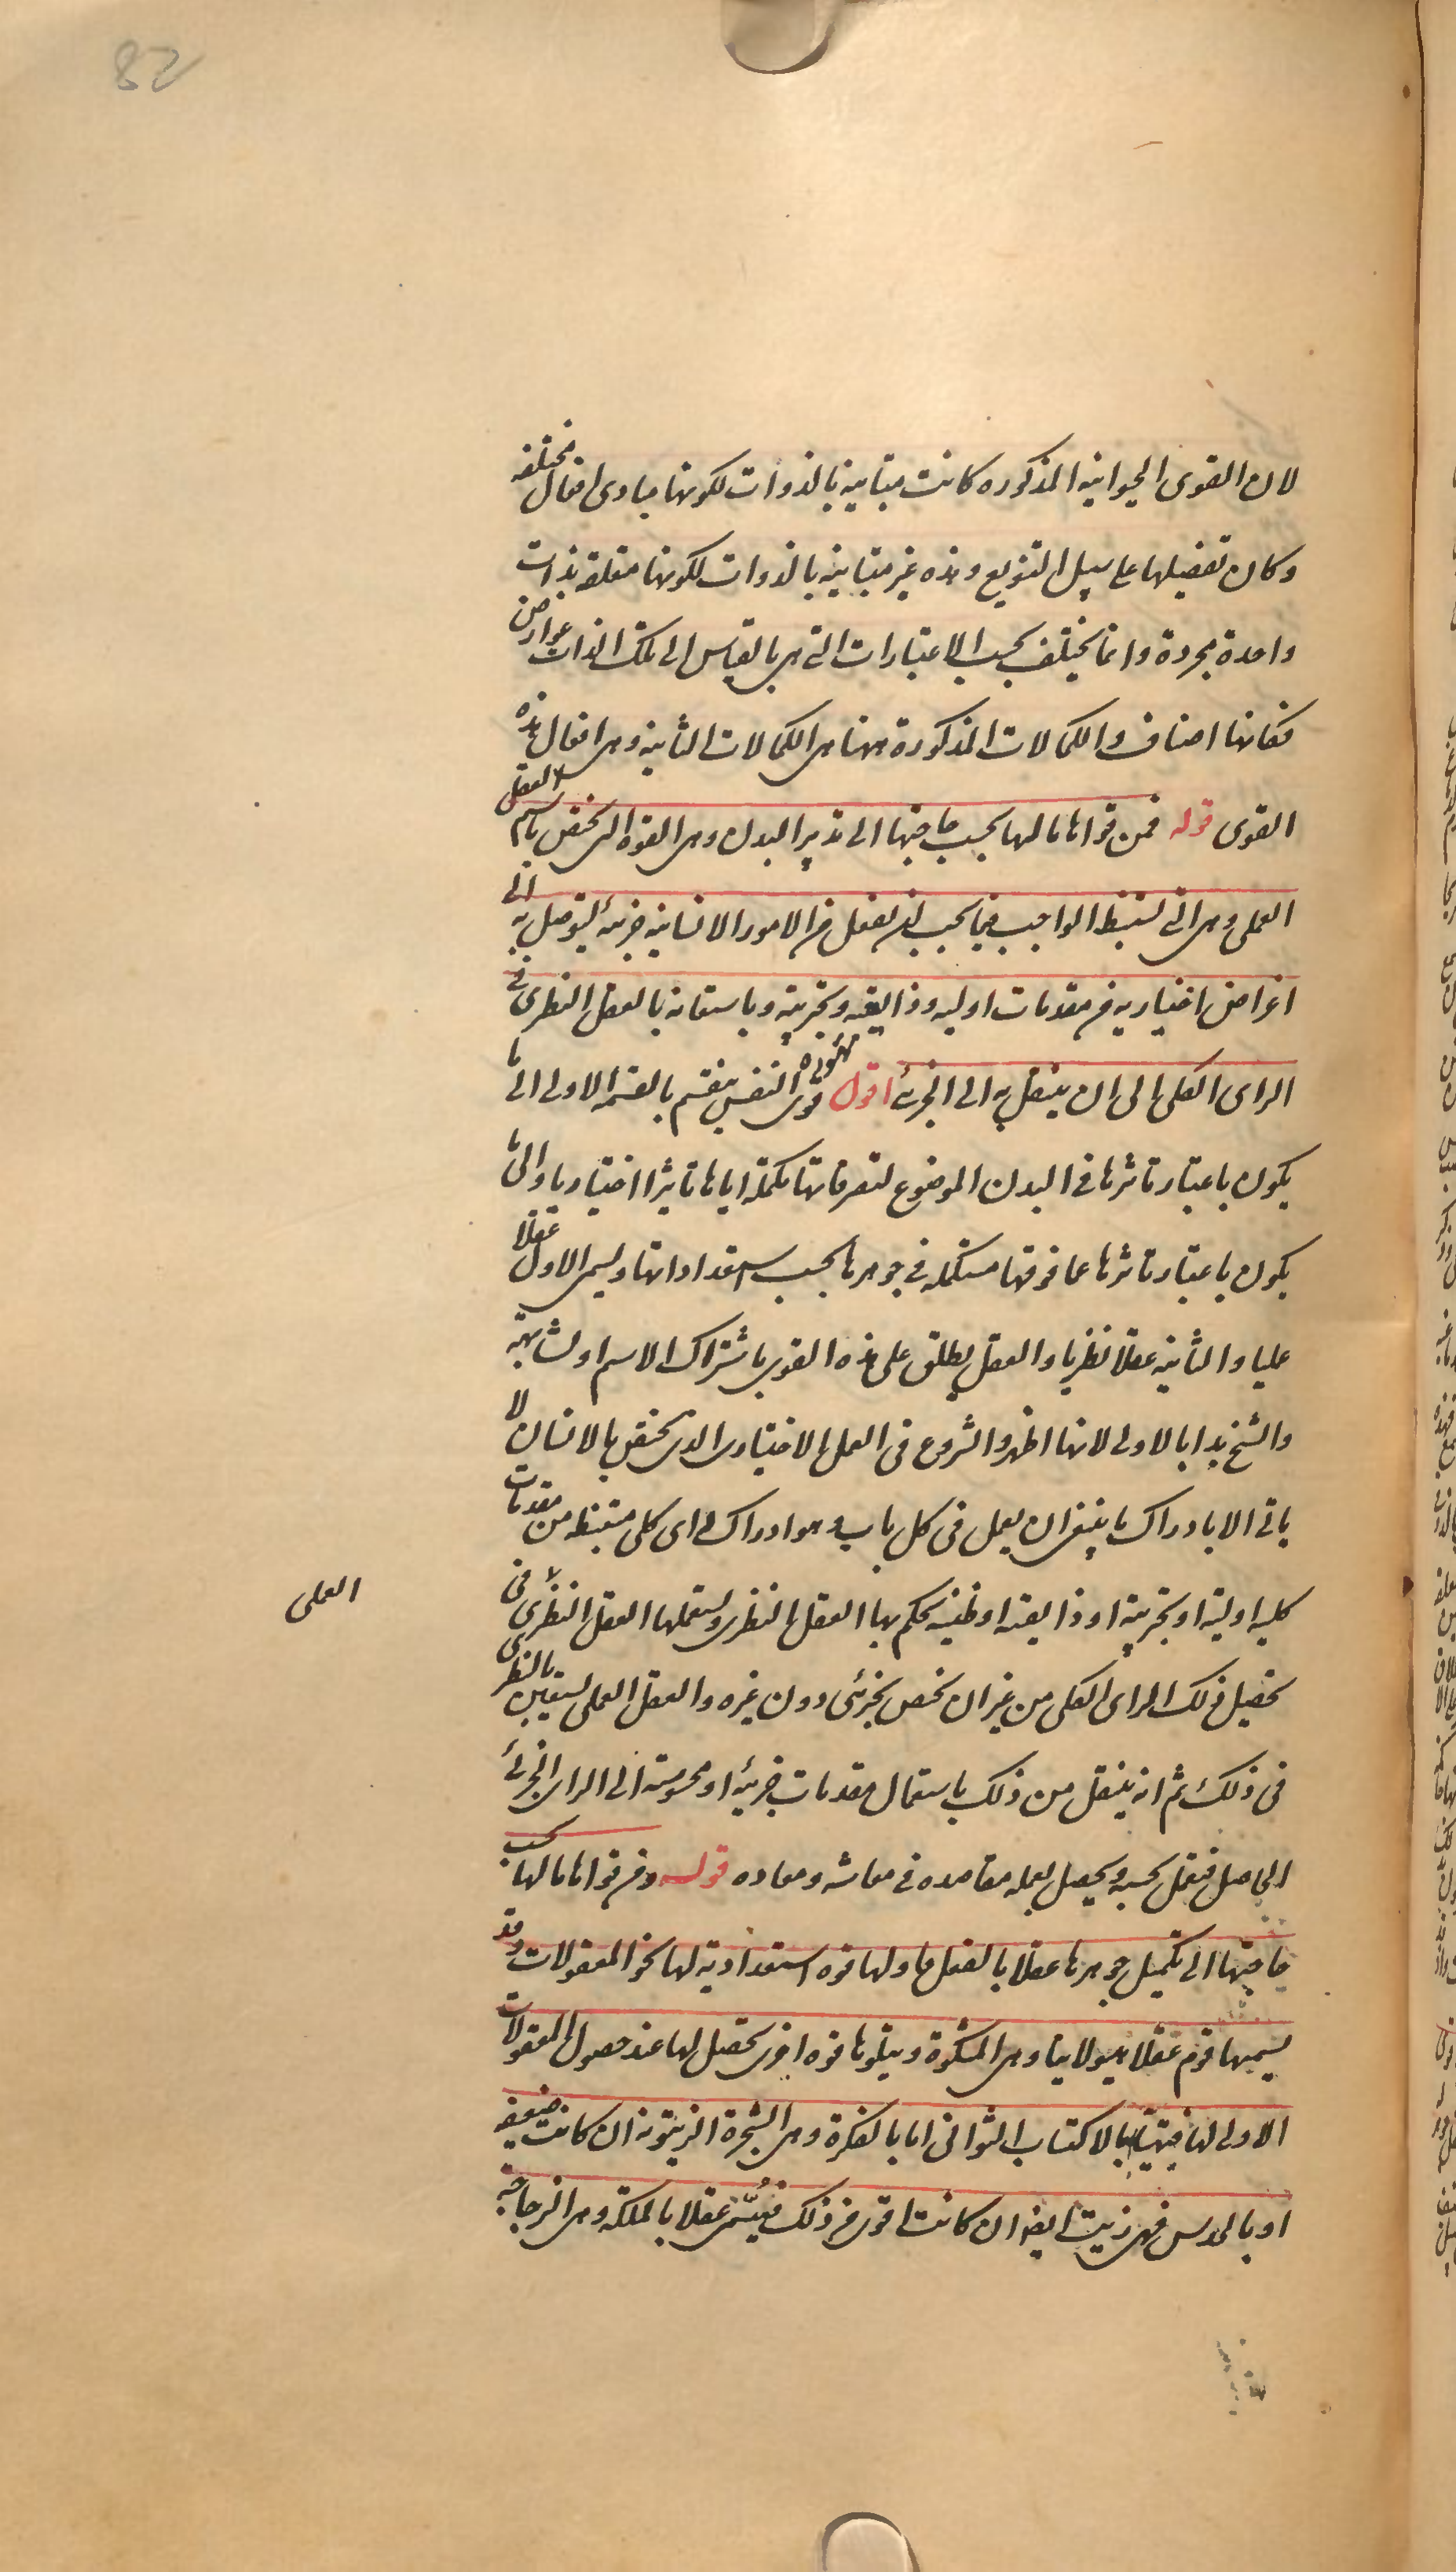 82
لان القوى الحيوانيه المذكوره كانت متباينه بالذوات لكونها مبادى افعال مختلفه
وكان تفصيلها على سبيل التنويع وهذه غير متباينه بالذوات لكونها متعلقه بذات
واحدة مجردة وانما يختلف بحسب الاعتبارات التى هى بالقياس الى تلك الذات عوارض
فكانها اصناف والكمالات المذكورة ههنا هى الكمالات الثانيه وهى افعال هذه
القوى قوله فمن قواها ما لها بحسب حاجتها الى تدبير البدن وهى القوه التى تختص باسم العقل
العملى وهى التى تستنبط الواجب فيما يجب ان يفعل من الامور الانسانيه جزئية ليتوصل به الى
اغراض اختياريه من مقدمات اوليه وذايعه وتجربيه وباستعانه بالعقل النظرى فى
الراى الكلى الى ان ينتقل به الى الجزئى اقول قوى النفس تنقسم بالقسمه الاولى الى ما
يكون باعتبار تاثرها فى البدن الموضوع لتصرفاتها مكمله اياها تاثيرا اختياريا والى ما
يكون باعتبار تاثرها عما فوقها مستكمله فى جوهرها بحسب استعداداتها ويسمى الاول عقلا
عمليا والثانيه عقلا نظريا والعقل يطلق على هذه القوى باشتراك الاسم او لمشابهته
والشيخ بدا بالاولى لانها اظهر والشروع فى العمل الاختيارى الذى يختص بالانسان لا
ياتى الا بادراك ما ينبغى ان يعمل فى كل باب وهو ادراك راى كلى مستنبط من مقدمات
كليه اوليه او تجربيه او ذايعه او ظنيه يحكم بها العقل النظرى ويستعملها العقل النظرى فى
العملى
تحصيل ذلك الراى الكلى من غير ان يختص بجزئى دون غيره والعقل العملى يستعين بالنظرى
فى ذلك ثم انه ينتقل من ذلك باستعمال مقدمات جزئيه او محسوسه الى الراى الجزئى
الحاصل فيعمل بحسبه ويحصل بعمله مقاصده فى معاشه ومعاده قوله ومن قواها ما لها بحسب
حاجتها الى تكميل جوهرها عقلا بالفعل فاولها قوه استعداديه لها نحو المعقولات وقد
يسميها قوم عقلا هيولانيا وهى المشكوة ويتلوها قوه اخرى تحصل لها عند حصول المعقولات
الاولى لها فيتهيا بها لاكتساب الثوانى اما بالفكرة وهى الشجرة الزيتونه ان كانت ضعيفه
او بالحدس فهى زيت ايضا ان كانت اقوى من ذلك فيسمى عقلا بالملكه وهى الزجاجه